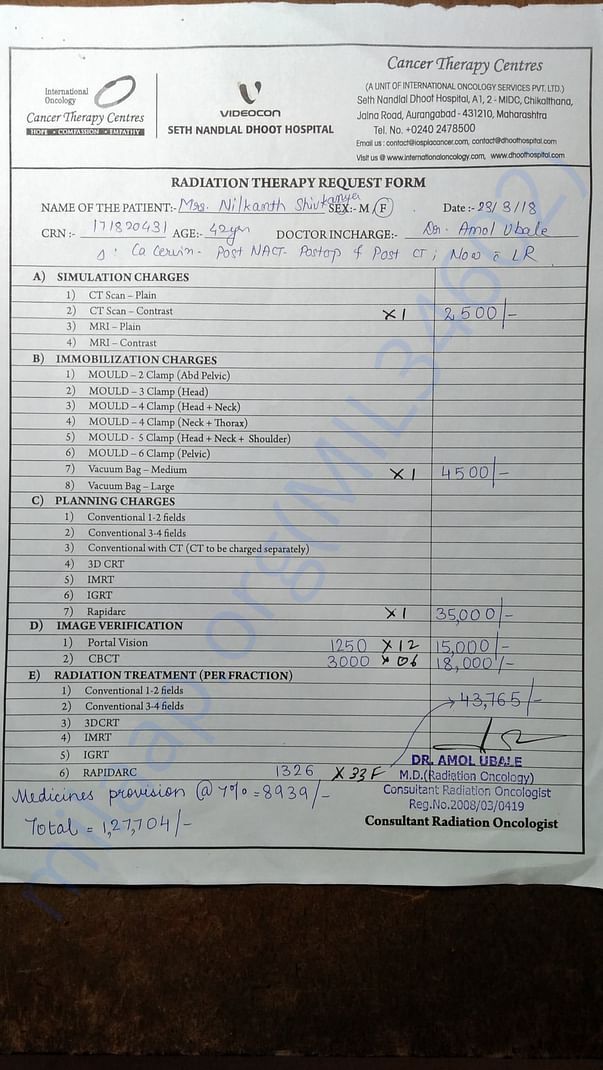 International
Oncology
Cancer Therapy Centres
HOPE • COMPASSION • EMPATHY
VIDEOCON
SETH NANDLAL DHOOT HOSPITAL
Cancer Therapy Centres
(A UNIT OF INTERNATIONAL ONCOLOGY SERVICES PVT. LTD.)
Seth Nandlal Dhoot Hospital, A1, 2 - MIDC, Chikalthana,
Jalna Road, Aurangabad - 431210, Maharashtra
Tel. No. +0240 2478500
Email us : contact@iosplacancer.com, contact@dhoothospital.com
Visit us @ www.internationaloncology.com, www.dhoothospital.com
RADIATION THERAPY REQUEST FORM
NAME OF THE PATIENT:- Mrs. Nilkanth Shivkanya SEX:- M / F Date :- 23/3/18
CRN :- 171820431 AGE:- 42yrs DOCTOR INCHARGE:- Dr. Amol Ubale
Ca Cervix - Post NACT- Postop & Post CT ; Now c LR
A) SIMULATION CHARGES
1) CT Scan – Plain
2) CT Scan – Contrast X1 2500/-
3) MRI – Plain
4) MRI – Contrast
B) IMMOBILIZATION CHARGES
1) MOULD – 2 Clamp (Abd Pelvic)
2) MOULD – 3 Clamp (Head)
3) MOULD – 4 Clamp (Head + Neck)
4) MOULD – 4 Clamp (Neck + Thorax)
5) MOULD - 5 Clamp (Head + Neck + Shoulder)
6) MOULD – 6 Clamp (Pelvic)
7) Vacuum Bag – Medium X1 4500/-
8) Vacuum Bag – Large
C) PLANNING CHARGES
1) Conventional 1-2 fields
2) Conventional 3-4 fields
3) Conventional with CT (CT to be charged separately)
4) 3D CRT
5) IMRT
6) IGRT
7) Rapidarc X1 35,000/-
D) IMAGE VERIFICATION
1) Portal Vision 1250 X12 15,000/-
2) CBCT 3000 X 06 18,000/-
E) RADIATION TREATMENT (PER FRACTION)
1) Conventional 1-2 fields
2) Conventional 3-4 fields 43,765/-
3) 3DCRT
4) IMRT
5) IGRT
6) RAPIDARC 1326 X 33F
DR. AMOL UBALE
M.D.(Radiation Oncology)
Consultant Radiation Oncologist
Reg.No.2008/03/0419
Consultant Radiation Oncologist
Medicines provision @ 7% = 8939/-
Total = 1,27,704/-
milaap.org(MIL346027)